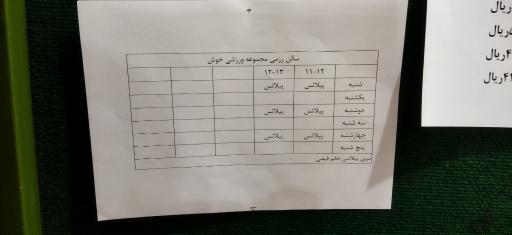 سالن رزمی مجموعه ورزشی خوش
۱۱-۱۲ ۱۲-۱۳
شنبه پیلاتس پیلاتس
یکشنبه
دوشنبه پیلاتس پیلاتس
سه شنبه
چهارشنبه پیلاتس پیلاتس
پنج شنبه
مربی پیلاتس خانم فیضی
ریال
ریال
ریال
ریال